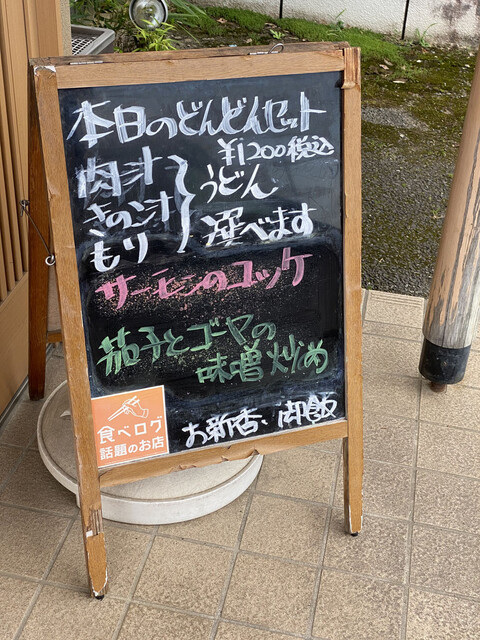 本日のどんどんセット
¥1200税込
肉汁
きのこ汁
もり
うどん
選べます
サーモンのコッケ
茄子とゴーヤの
味噌炒め
お新香、御飯
食べログ
話題のお店